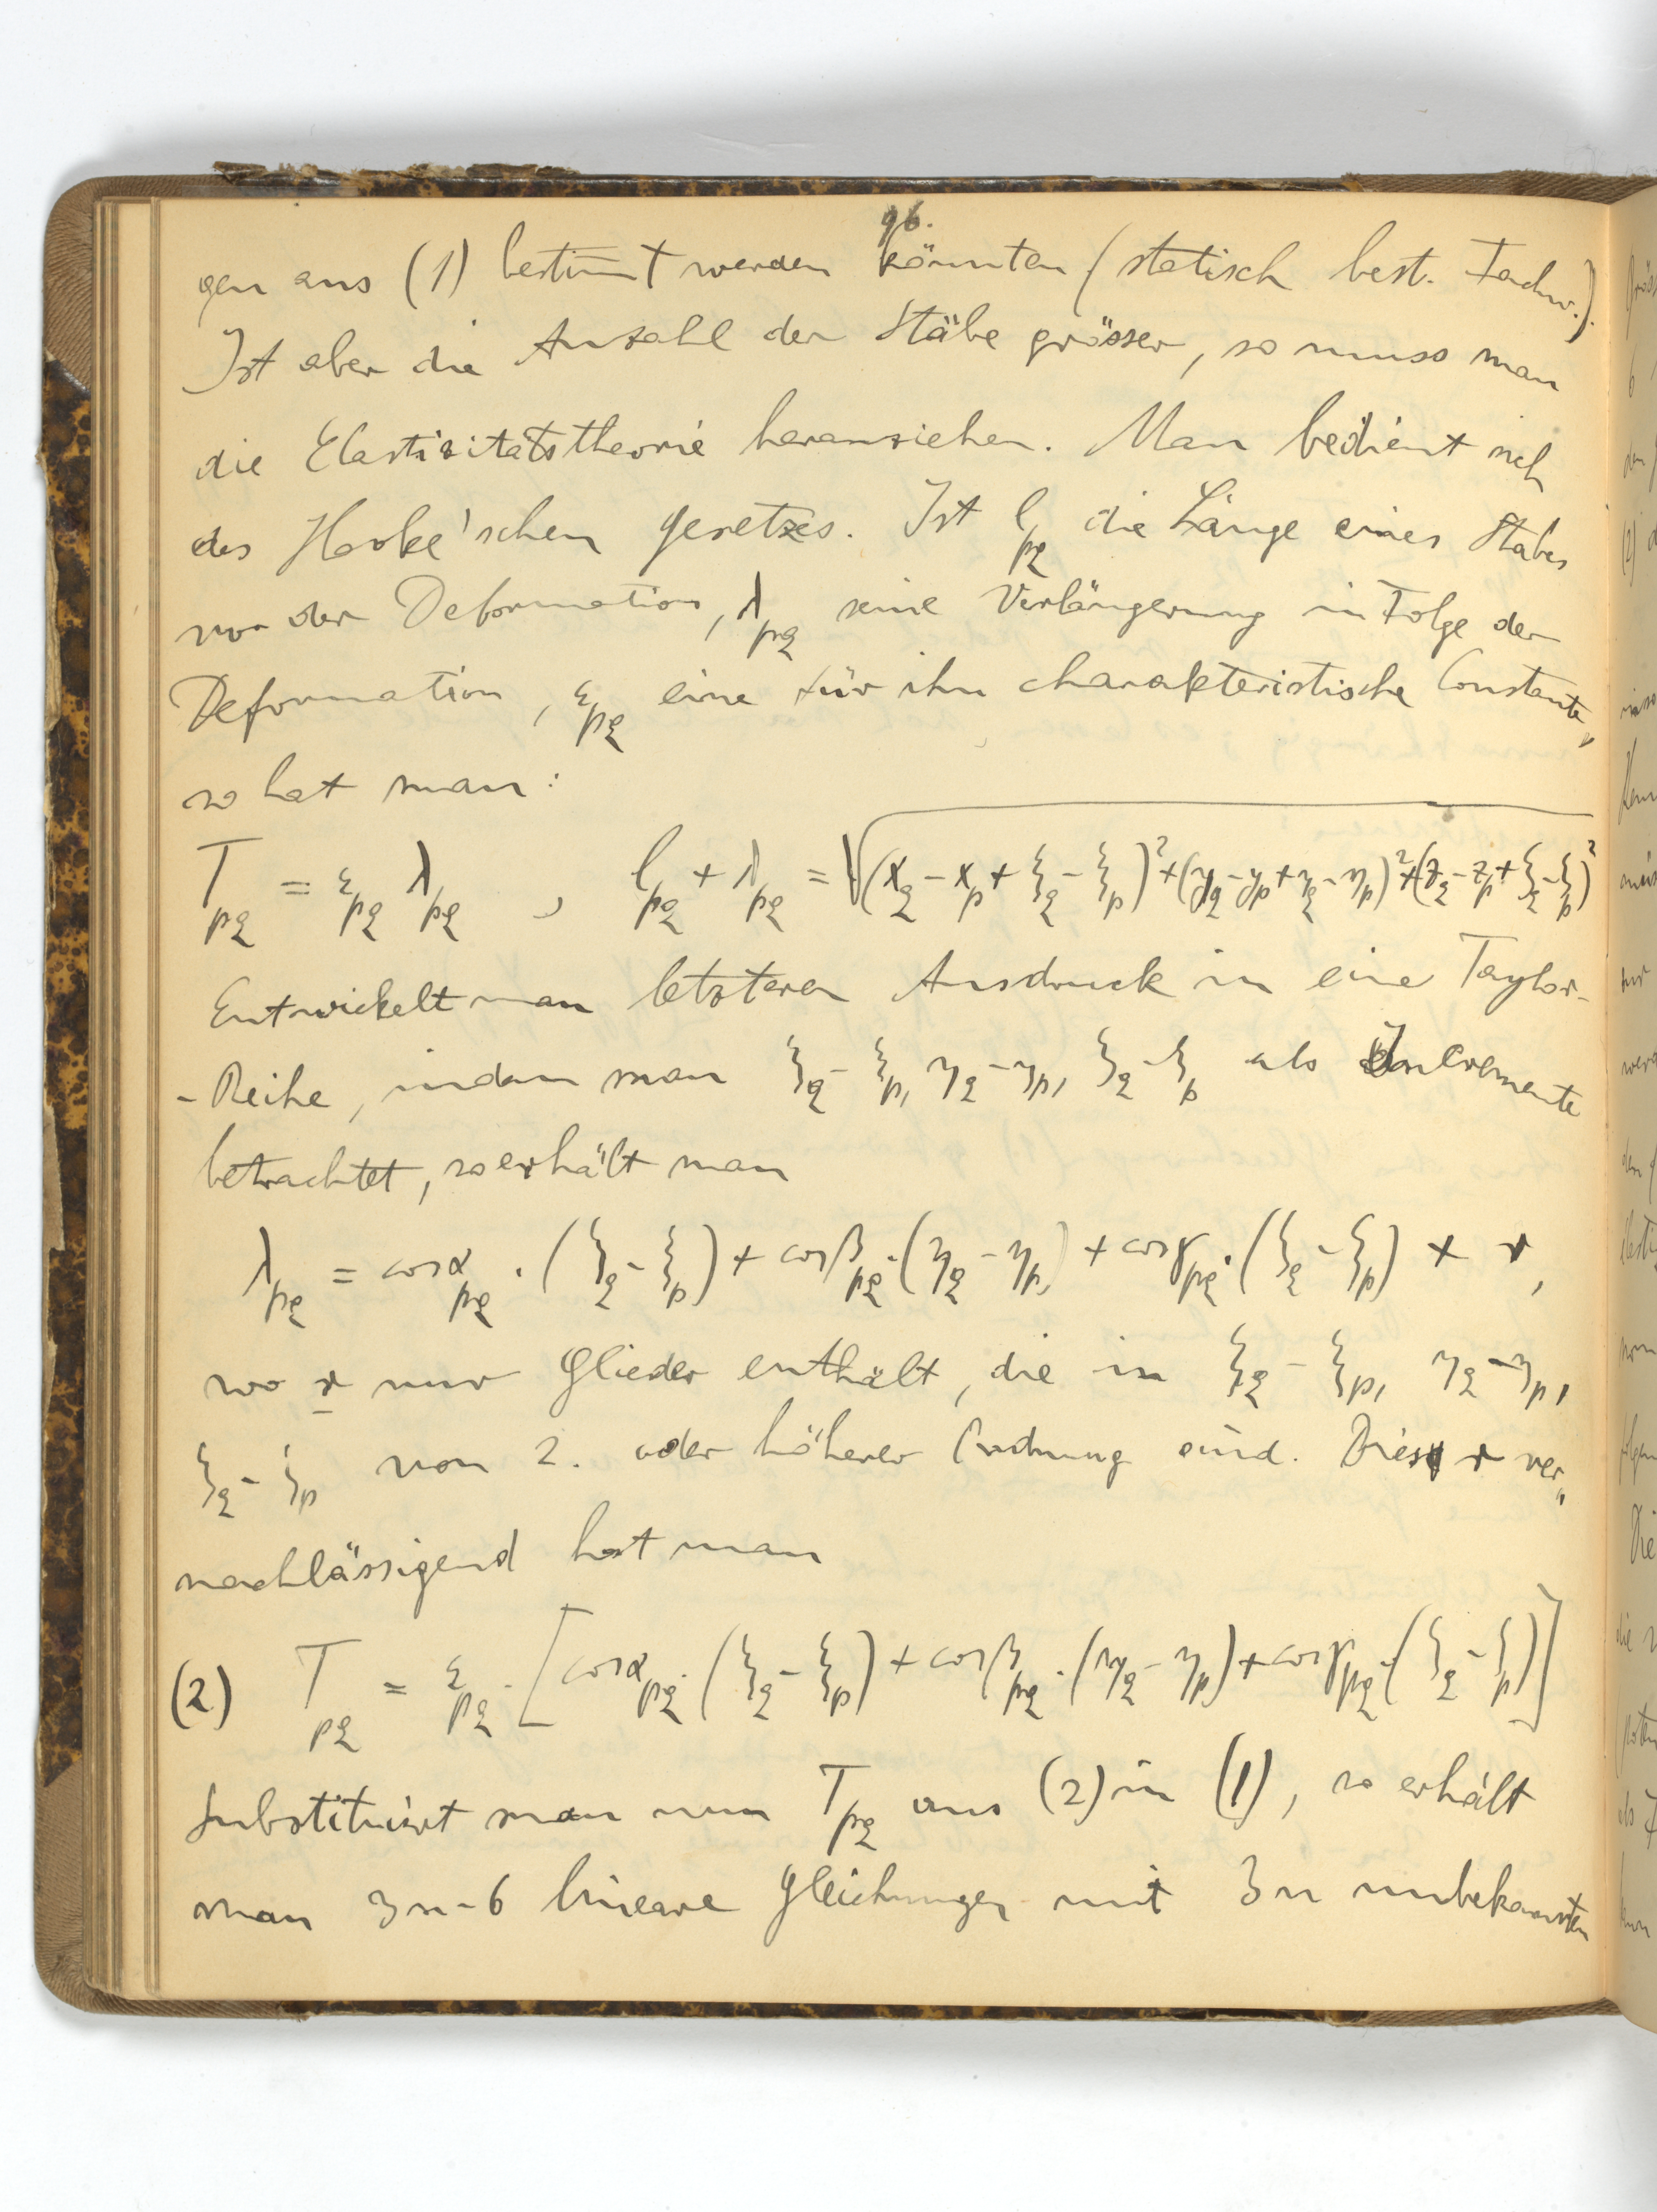 96.
gen aus (1) bestim̅t werden könnten (statisch best. Fachw.).
Ist aber die Anzahl der Stäbe grösser, so muss man
die Elastizitätstheorie heranziehen. Man bedient sich
des Hooke'schen Gesetzes. Ist l_pq die Länge eines Stabes
vor der Deformation, λ_pq seine Verlängerung in Folge der
Deformation, ε_pq eine für ihn charakteristische Constante,
so hat man:
T_pq = ε_pq λ_pq , l_pq + λ_pq = √((x_q - x_p + ξ_q - ξ_p)² + (y_q - y_p + η_q - η_p)² + (z_q - z_p + ζ_q - ζ_p)²)
Entwickelt man letzteren Ausdruck in eine Taylor-
-Reihe, indem man ξ_q - ξ_p, η_q - η_p, ζ_q - ζ_p als Incremente
betrachtet, so erhält man
λ_pq = cosα_pq . (ξ_q - ξ_p) + cosβ_pq . (η_q - η_p) + cosγ_pq . (ζ_q - ζ_p) + r,
wo r nur Glieder enthält, die in ξ_q - ξ_p, η_q - η_p,
ζ_q - ζ_p von 2. oder höherer Ordnung sind. Dies r ver„
nachlässigend hat man
(2) T_pq = ε_pq . [cosα_pq . (ξ_q - ξ_p) + cosβ_pq . (η_q - η_p) + cosγ_pq . (ζ_q - ζ_p)]
Substituirt man nun T_pq aus (2) in (1), so erhält
man 3n-6 lineare Gleichungen mit 3n unbekannten